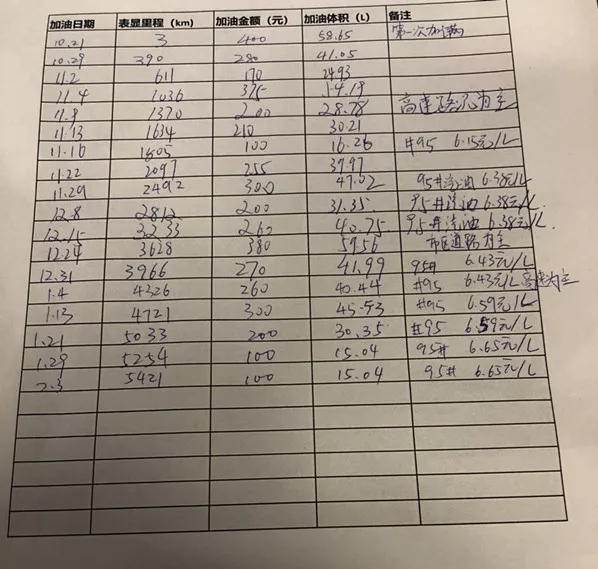 加油日期 表显里程（km） 加油金额（元） 加油体积（L） 备注
10.21 3 400 58.65 第一次加满
10.29 390 280 41.05
11.2 611 170 2493
11.4 1036 375
11.9 1370 200 28.78 高速 为主
11.13 1634 210 30.21
11.16 1805 100 16.26 #95 6.15元/L
11.22 2097 255 37.97
11.29 2492 300 47.02 95#汽油 6.38元/L
12.8 2812 200 31.35 95#汽油 6.38元/L
12.15 3233 260 40.75 95#汽油 6.38元/L
12.24 3628 380 59.56 市区道路为主
12.31 3966 270 41.99 95# 6.43元/L
1.4 4326 260 40.44 #95 6.43元/L 高速为主
1.13 4721 300 45.53 #95 6.59元/L
1.21 5033 200 30.35 #95 6.59元/L
1.29 5254 100 15.04 95# 6.65元/L
2.3 5421 100 15.04 95# 6.65元/L